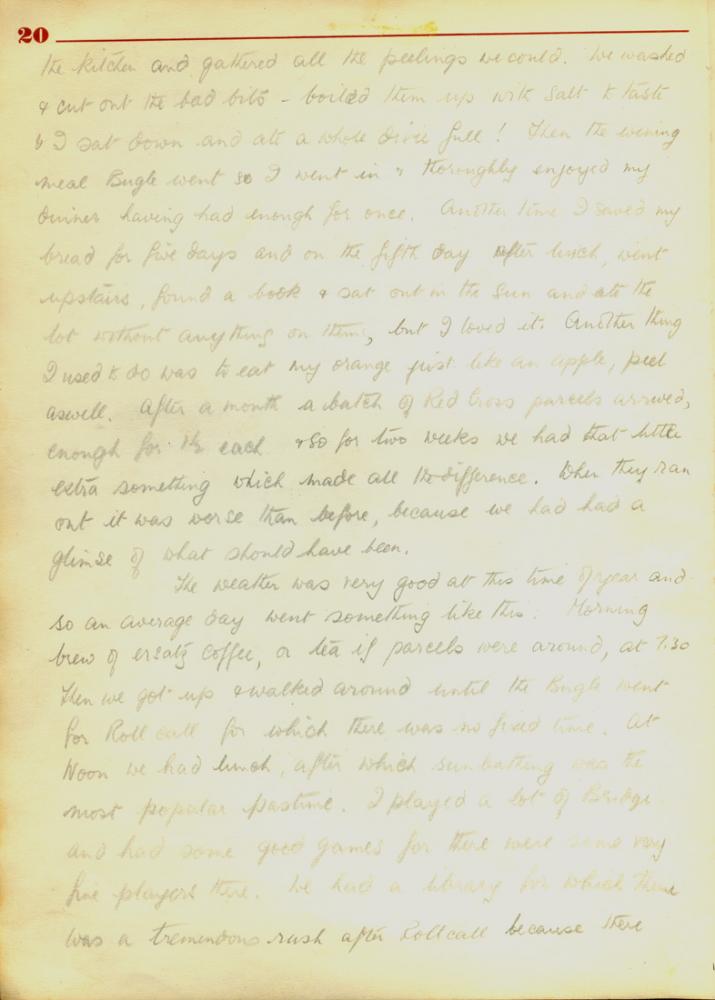 20
the kitchen and gathered all the peelings we could. We washed
& cut out the bad bits - boiled them up with salt to taste
& I sat down and ate a whole dixie full! Then the evening
meal Bugle went so I went in & thoroughly enjoyed my
dinner having had enough for once. Another time I saved my
bread for five days and on the fifth day after lunch, went
upstairs, found a book & sat out in the sun and ate the
lot without anything on them, but I loved it. Another thing
I used to do was to eat my orange just like an apple, peel
aswell. After a month a batch of Red Cross parcels arrived,
enough for 1½ each & so for two weeks we had that little
extra something which made all the difference. When they ran
out it was worse than before, because we had had a
glimse of what should have been.
The weather was very good at this time of year and
so an average day went something like this. Morning
brew of ersatz coffee, or tea if parcels were around, at 7.30
Then we got up & walked around until the Bugle went
for Roll call for which there was no fixed time. At
Noon we had lunch, after which sunbathing was the
most popular pastime. I played a lot of Bridge
and had some good games for there were some very
fine players there. We had a library for which there
was a tremendous rush after Rollcall because there